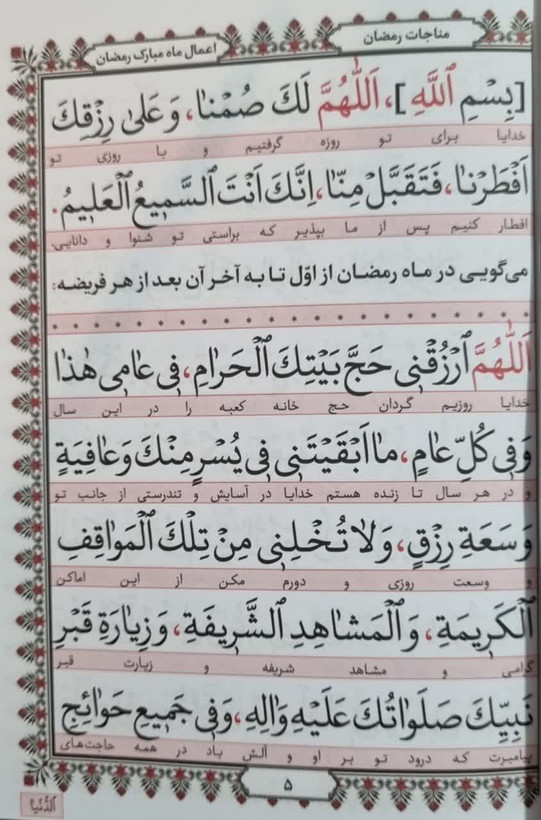 مناجات رمضان
اعمال ماه مبارک رمضان
[بِسْمِ ٱللَّهِ]، اَللّٰهُمَّ لَكَ صُمْنٰا، وَعَلىٰ رِزْقِكَ
خدایا برای تو روزه گرفتیم و با روزی تو
اَفْطَرْنٰا، فَتَقَبَّلْ مِنّٰا، اِنَّكَ اَنْتَ ٱلسَّمِيعُ ٱلْعَلِيمُ.
افطار کنیم پس از ما بپذیر که براستی تو شنوا و دانایی.
می‌گویی در ماه رمضان از اوّل تا به آخر آن بعد از هر فریضه:
اَللّٰهُمَّ ٱرْزُقْنِى حَجَّ بَيْتِكَ ٱلْحَرٰامِ، فِى عٰامِى هٰذٰا
خدایا روزیم گردان حج خانه کعبه را در این سال
وَفِى كُلِّ عٰامٍ، مٰا اَبْقَيْتَنِى فِى يُسْرٍ مِنْكَ وَعٰافِيَةٍ
و در هر سال تا زنده هستم خدایا در آسایش و تندرستی از جانب تو
وَسَعَةِ رِزْقٍ، وَلاٰ تُخْلِنِى مِنْ تِلْكَ ٱلْمَوٰاقِفِ
و وسعت روزی و دورم مکن از این اماکن
ٱلْكَرِيمَةِ، وَٱلْمَشٰاهِدِ ٱلشَّرِيفَةِ، وَزِيٰارَةِ قَبْرِ
گرامی و مشاهد شریفه و زیارت قبر
نَبِيِّكَ صَلَوٰاتُكَ عَلَيْهِ وَاٰلِهِ، وَفِى جَمِيعِ حَوٰائِجِ
پیامبرت که درود تو بر او و آلش باد در همه حاجت‌های
۵
ٱلدُّنْيٰا